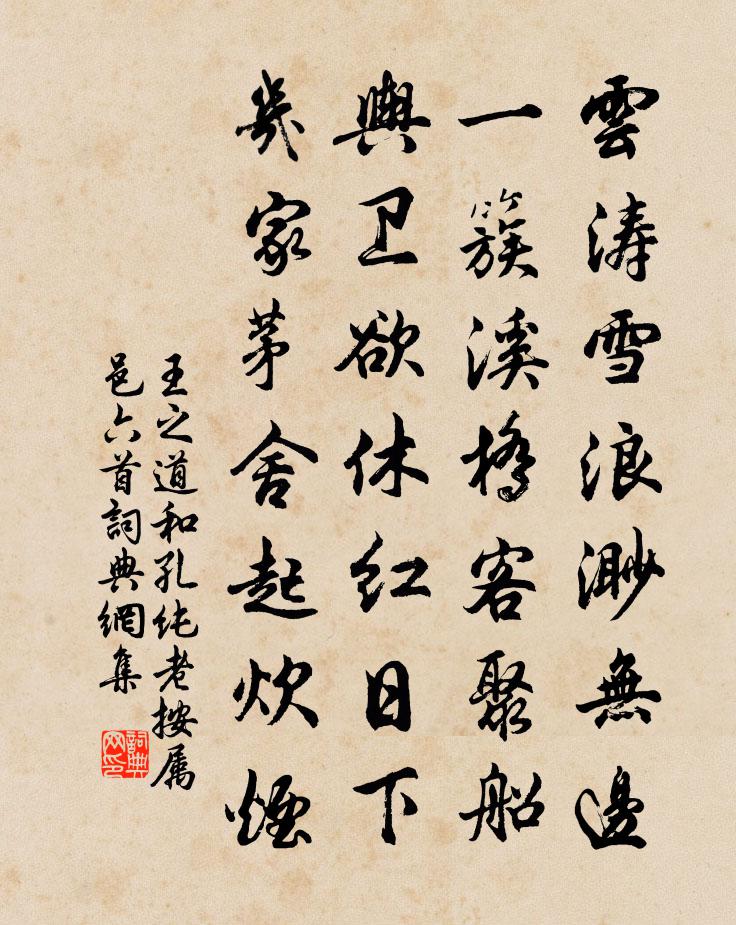 雲涛雪浪渺無邊
一簇溪橋客聚船
輿卫欲休红日下
幾家茅舍起炊煙
王之道和孔纯老按属
邑六首詞典網集
詞典
网印